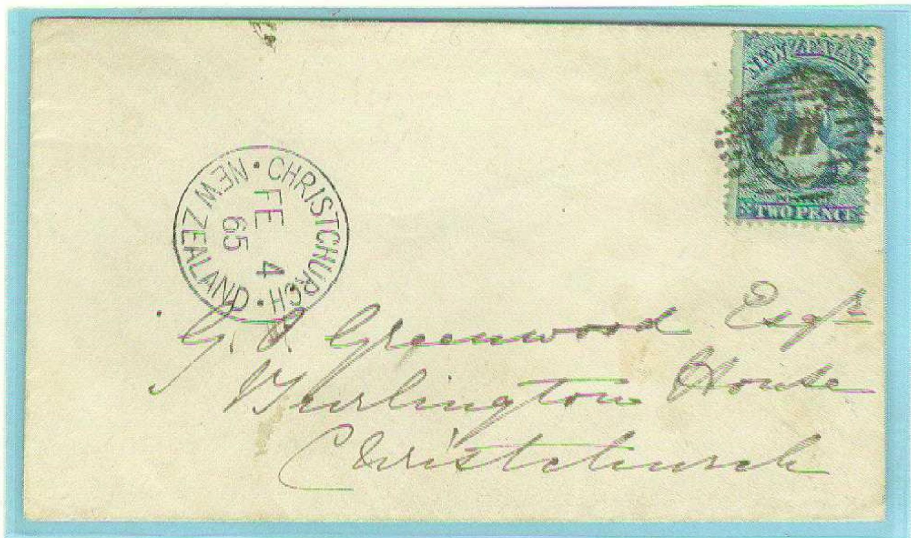 NEW ZEALAND
TWO PENCE
CHRISTCHURCH · NEW ZEALAND ·
FE 4
65
G. Greenwood Esqre
Burlington House
Christchurch